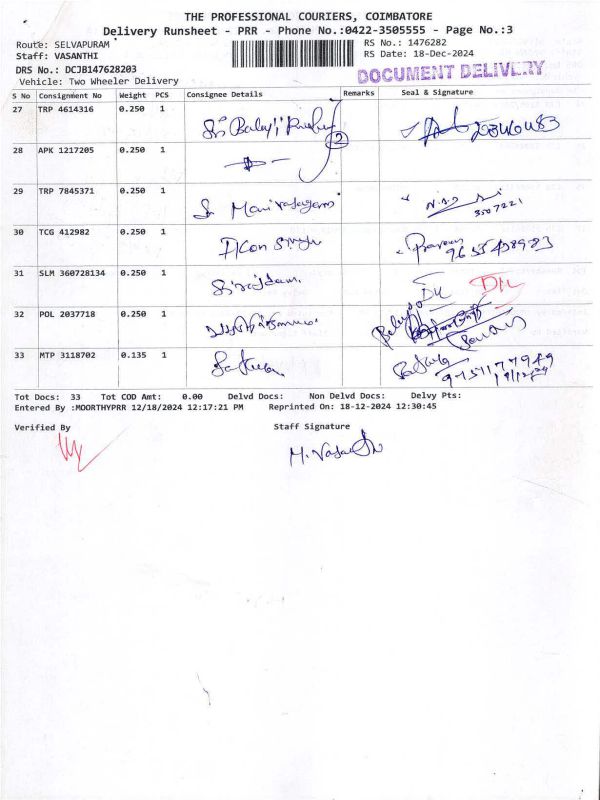 THE PROFESSIONAL COURIERS, COIMBATORE
Delivery Runsheet - PRR - Phone No.:0422-3505555 - Page No.:3
Route: SELVAPURAM
RS No.: 1476282
Staff: VASANTHI
RS Date: 18-Dec-2024
DRS No.: DCJB147628203
DOCUMENT DELIVERY
Vehicle: Two Wheeler Delivery
S No Consignment No Weight PCS Consignee Details Remarks Seal & Signature
27 TRP 4614316 0.250 1 Sri Balaji
2
28 APK 1217205 0.250 1
29 TRP 7845371 0.250 1 Sri
3507221
30 TCG 412982 0.250 1 Praveen
31 SLM 360728134 0.250 1 DL DL
32 POL 2037718 0.250 1
33 MTP 3118702 0.135 1
9751177949
19/12/24
Tot Docs: 33 Tot COD Amt: 0.00 Delvd Docs: Non Delvd Docs: Delvy Pts:
Entered By :MOORTHYPRR 12/18/2024 12:17:21 PM Reprinted On: 18-12-2024 12:30:45
Verified By Staff Signature